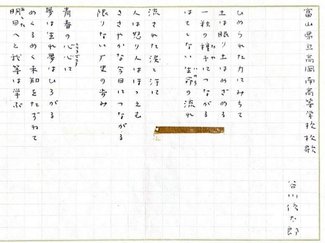 富山県立高岡南高等学校校歌
谷川俊太郎
ひめられた力にみちて
土は眠り土はめざめる
一粒の種子につながる
はてしない生命の流れ
流された涙と汗に
人は怒り人はほほえむ
ささやかな今日につながる
限りない歴史の歩み
青春の心に
夢は生れ夢はひろがる
めくるめく未知をたずねて
明日へと我等は学ぶ